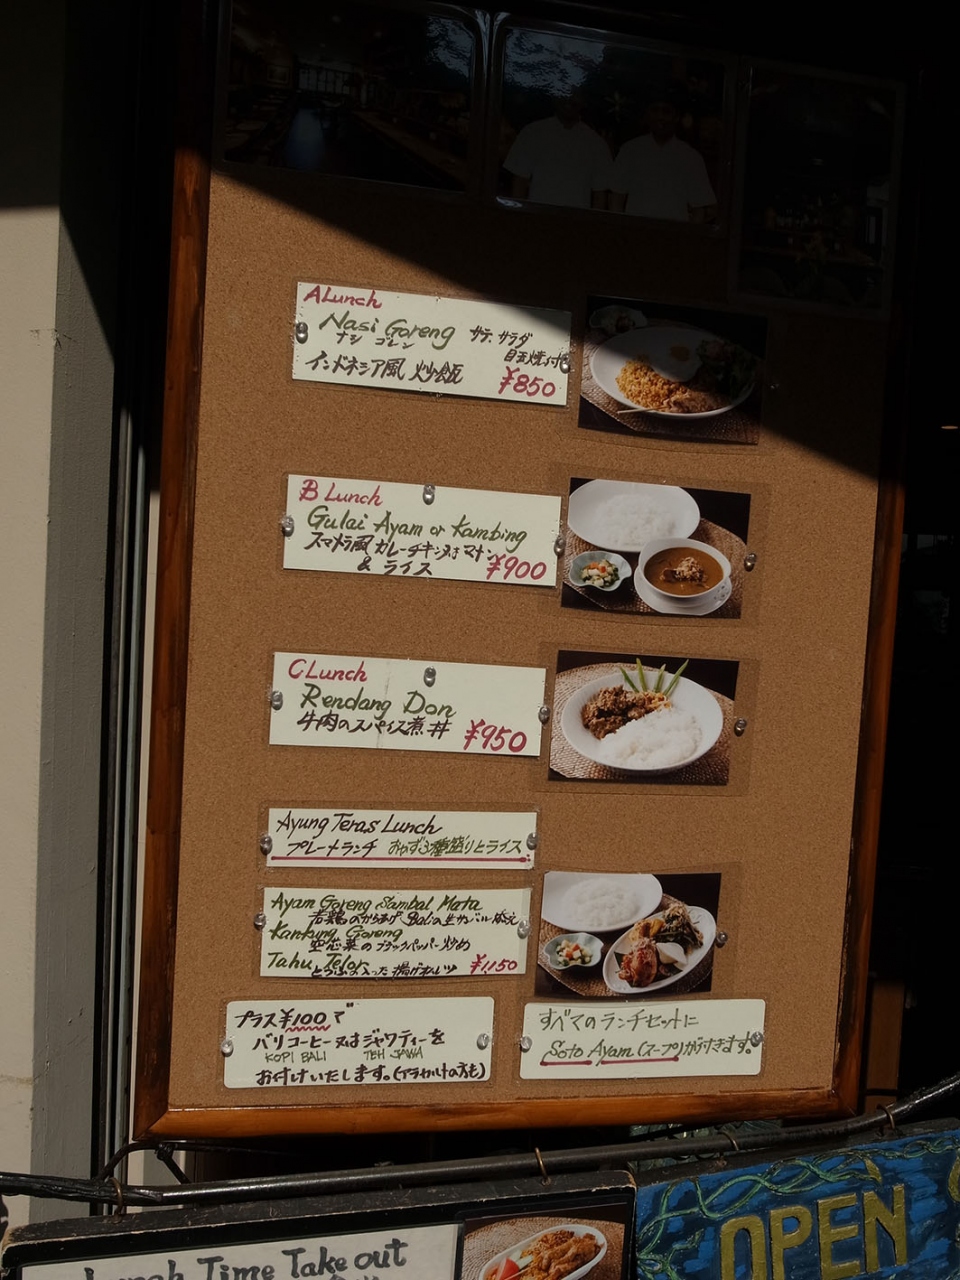 A Lunch
Nasi Goreng サテ、サラダ
ナシ ゴレン 目玉焼き付
インドネシア風 炒飯 ¥850
B Lunch
Gulai Ayam or Kambing
スマトラ風カレーチキン又はマトン
& ライス ¥900
C Lunch
Rendang Don
牛肉のスパイス煮丼 ¥950
Ayung Teras Lunch
プレートランチ おかず3種盛りとライス
Ayam Goreng Sambal Mata
若鶏のからあげ Baliの生サンバル添え
Kankung Goreng
空芯菜のブラックペッパー炒め
Tahu Telor
とうふの入った揚げオムレツ ¥1,150
プラス¥100で
バリコーヒー又はジャワティーを
KOPI BALI TEH JAWA
お付けいたします。(アラカルトの方も)
すべてのランチセットに
Soto Ayam (スープ)が付きます。
Lunch Time Take out
OPEN